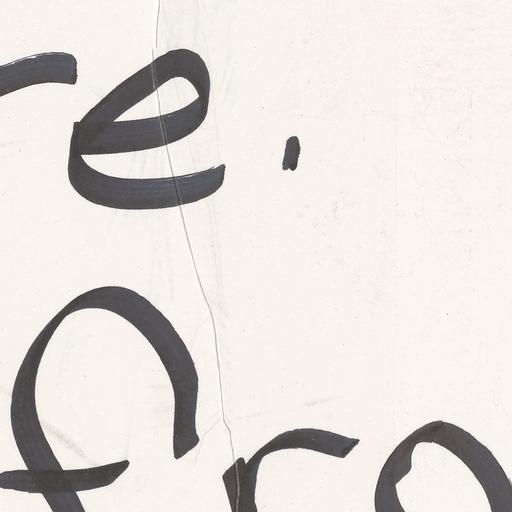 re.
fro